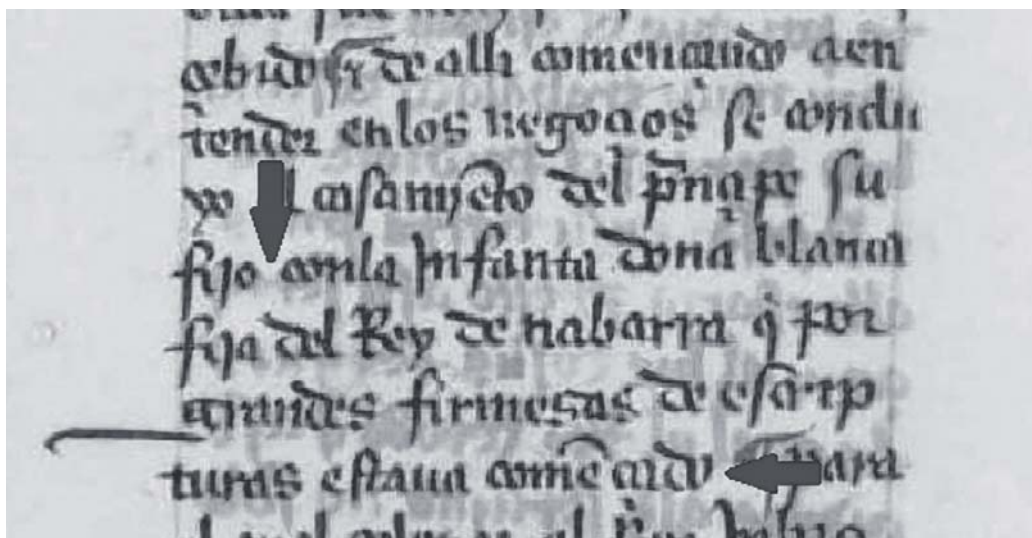 cebido ⁊ de alli començando a en
tender en los negoçios se condu
xo casamyẽto del prinçipe su
fijo con la Infanta doña blanca
fija del Rey de nabarra q̃ por
grandes firmesas de escrip
turas estaua comẽçado para